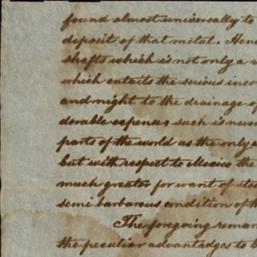 found almost universally to
deposit of that metal. Hen
shafts which is not only a
which entails the serious incr
and might to the drainage of
derable expense; such is never
parts of the world as the only
but with respect to Mexico the
much greater for want of ste
semi barbarous condition of th
The foregoing remar
the peculiar advantages to b